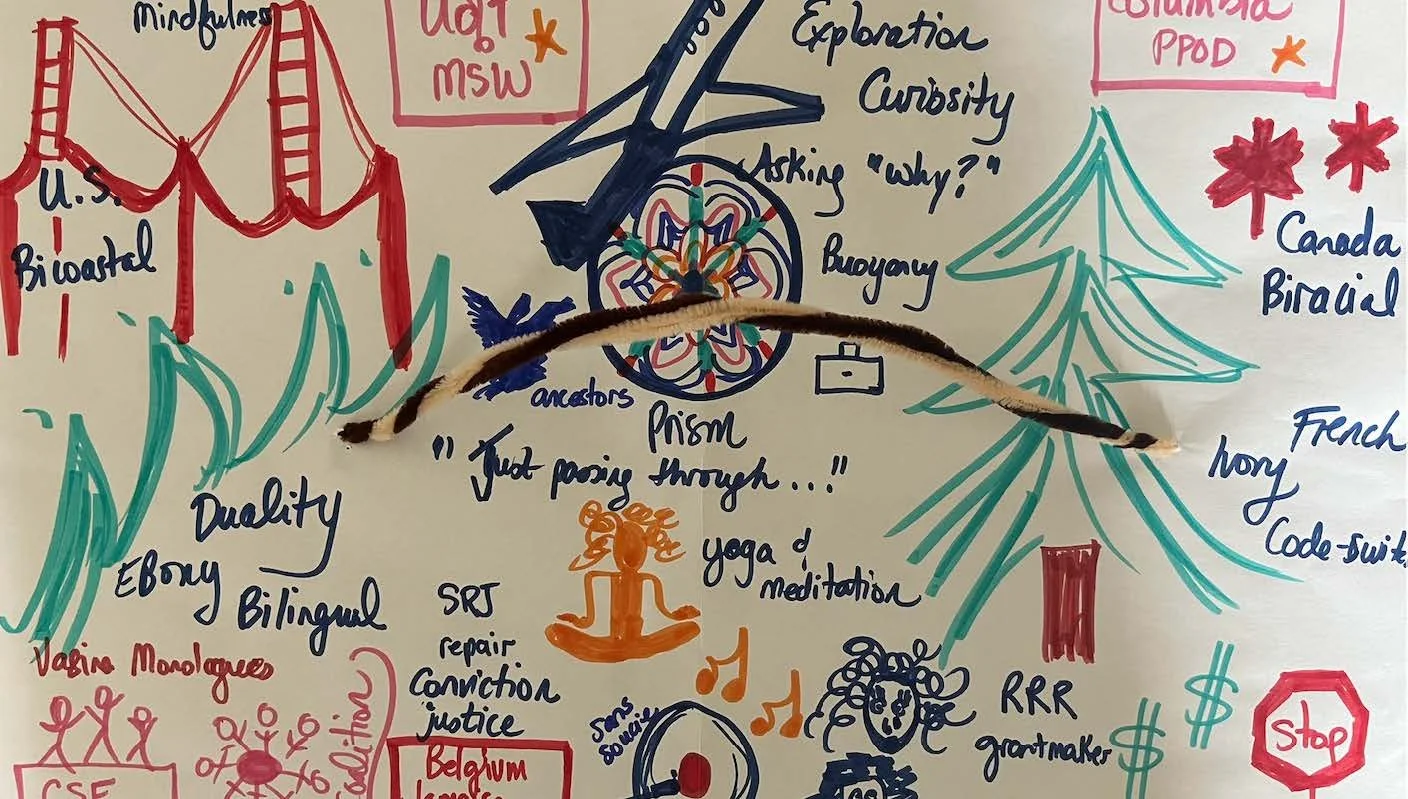 mindfulness
UofT
MSW
Exploration
Curiosity
Asking "why?"
Columbia
PPOD
U.S.
Bicoastal
Buoyancy
Canada
Biracial
ancestors
Prism
"Just passing through..!!
French
Ivory
Code-swit
Duality
Ebony
Bilingual
yoga &
meditation
SRJ
repair
Conviction
justice
Vagina Monologues
CSE
sans
soucis
Belgium
RRR
grantmaker
$
$
Stop